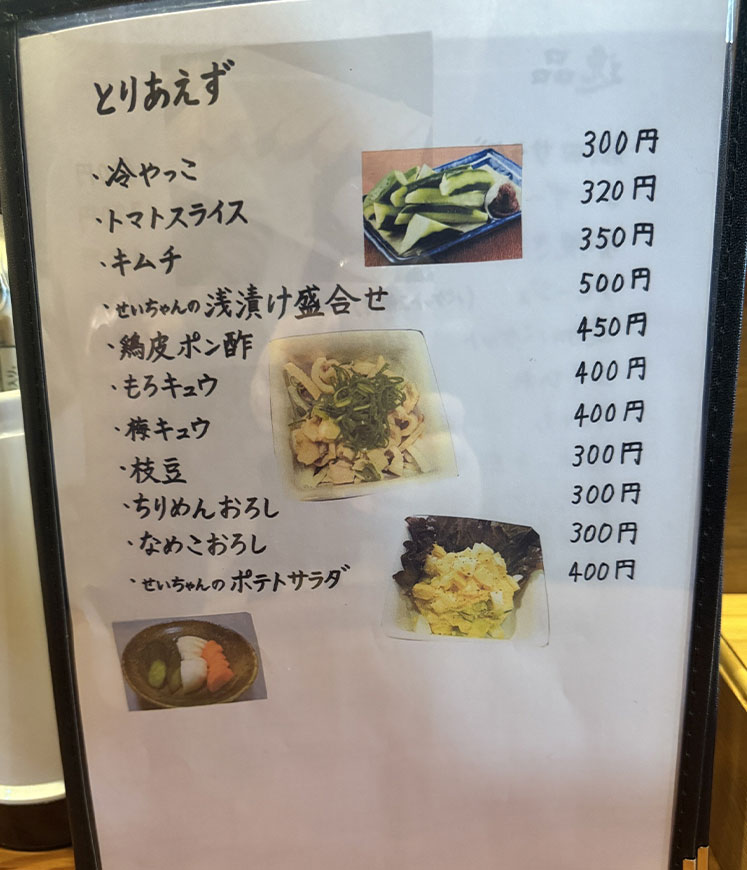 とりあえず
・冷やっこ 300円
・トマトスライス 320円
・キムチ 350円
・せいちゃんの浅漬け盛合せ 500円
・鶏皮ポン酢 450円
・もろキュウ 400円
・梅キュウ 400円
・枝豆 300円
・ちりめんおろし 300円
・なめこおろし 300円
・せいちゃんのポテトサラダ 400円